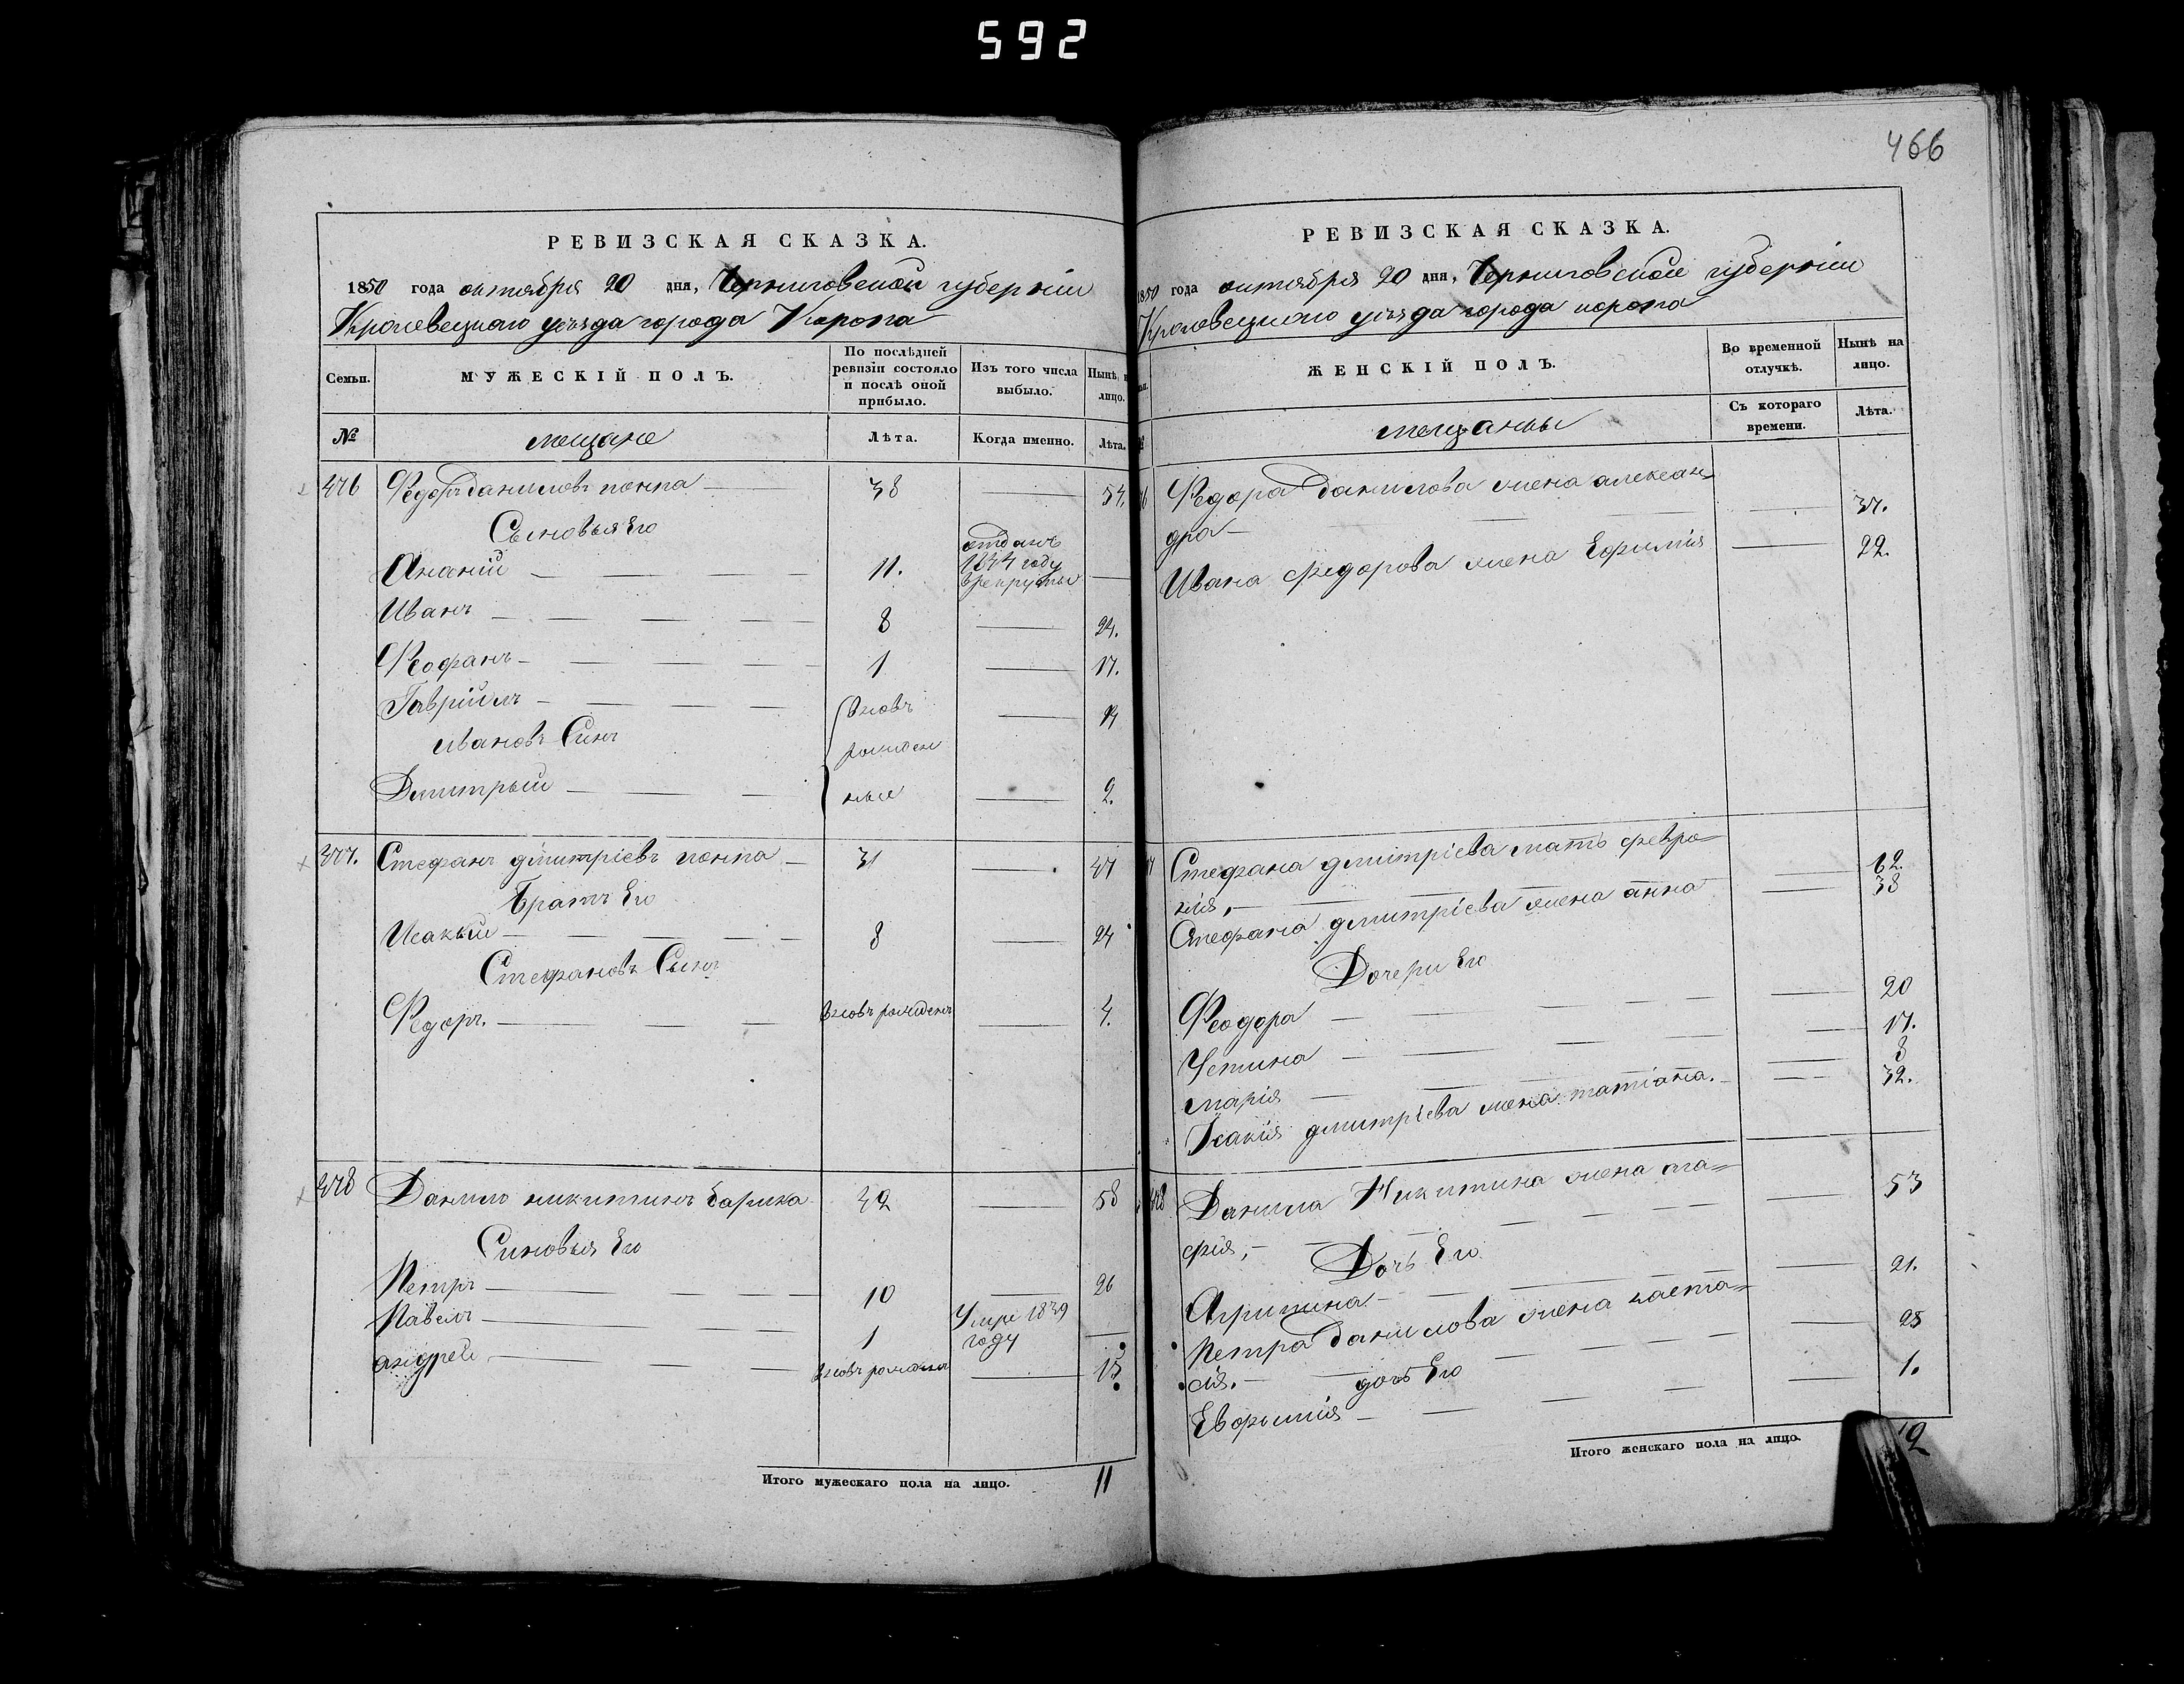 592
466
РЕВИЗСКАЯ СКАЗКА.
1850 года октября 20 дня, Черниговской губерніи
Кролевецкаго уѣзда города Коропа
Семьи.
МУЖЕСКІЙ ПОЛЪ.
По послѣдней ревизіи состояло и послѣ оной прибыло.
Изъ того числа выбыло.
Нынѣ н лицо.
№
мещане
Лѣта.
Когда именно.
Лѣта.
476 Федоръ даниловъ попка 38 54.
Сыновья Его
Ананій 11. отданъ 1844 году в рекруты
Иванъ 8 24.
Феофанъ 1 17.
Гавріилъ вновь 14
ивановъ Синъ рожден
Дмитрый ные 2.
477. Стефанъ дмитріевъ попка 31 47
Братъ Его
Исакый 8 24
Стефановъ Сынъ
Федоръ. вновь рожденъ 4.
478 Данило никитинъ 42 58
Синовья Его
Петръ 10 26
Павелъ 1 Умре 1839 году
андрей вновь рожденъ 15
Итого мужескаго пола на лицо. 11
РЕВИЗСКАЯ СКАЗКА.
1850 года октября 20 дня, Черниговской губерніи
Кролевецкаго уѣзда города коропа
ЖЕНСКІЙ ПОЛЪ.
Во временной отлучкѣ.
Нынѣ на лицо.
мещанкы
Съ котораго времени.
Лѣта.
Федора данилова жена алексан=
дра 37.
Ивана федорова жена Ефимия 22.
Стефана дмитріева мать февро=
нія, 62.
Стефана дмитріева жена анна 38
Дочери Его
Феодора 20
Устина 17.
марія 8
Исакія дмитріева жена татіана. 32.
478 Данила Никитина жена ага=
фія, 53
Дочь Его
Агрипина 21.
Петра данилова жена наста=
сія. 25
дочь Его
Евфимія 1.
Итого женскаго пола на лицо. 12